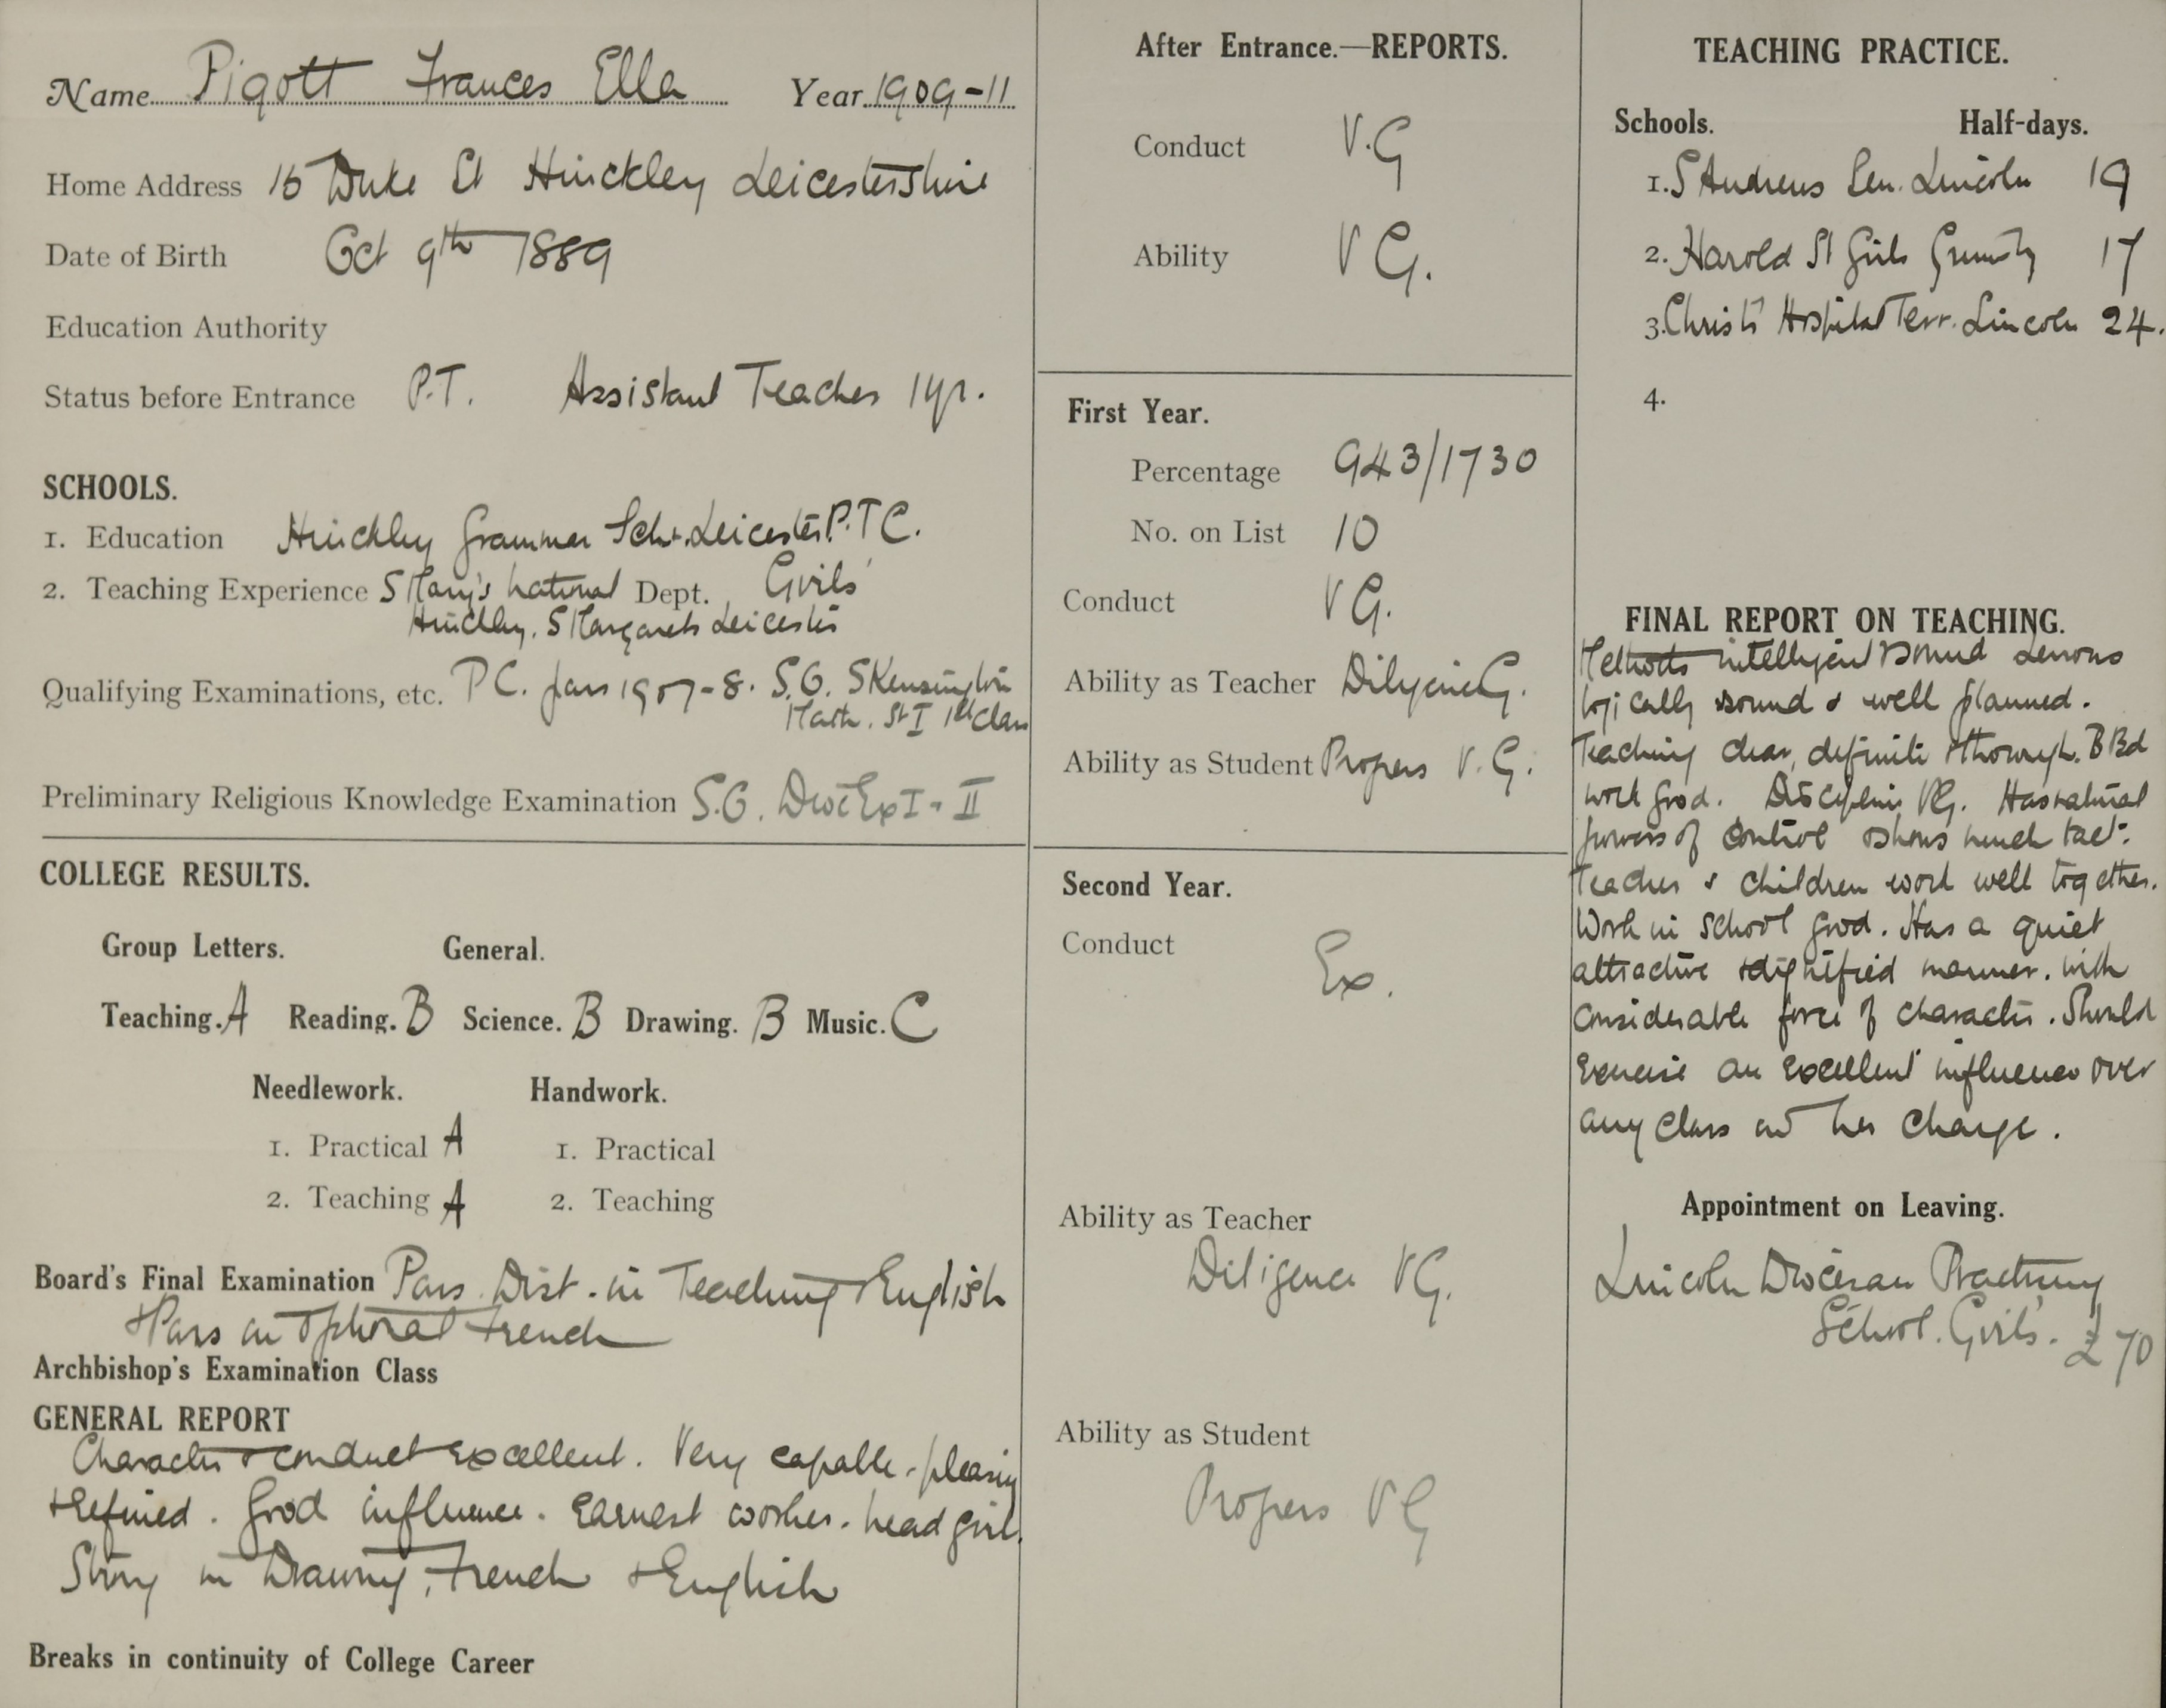 Name Pigott Frances Ella Year 1909-11
Home Address 15 Duke St Hinckley Leicestershire
Date of Birth Oct 9th 1889
Education Authority
Status before Entrance P.T. Assistant Teacher 1yr.
SCHOOLS.
1. Education Hinckley Grammar Sch. Leicester P.T.C.
2. Teaching Experience S Mary's National Dept. Girls'
Hinckley. S Margarets Leicester
Qualifying Examinations, etc. P C. Jan 1907-8. S.G. S Kensington
Math. St I 1st Class
Preliminary Religious Knowledge Examination S.G. Dioc Ex I - II
COLLEGE RESULTS.
Group Letters. General.
Teaching. A Reading. B Science. B Drawing. B Music. C
Needlework. Handwork.
1. Practical A 1. Practical
2. Teaching A 2. Teaching
Board's Final Examination Pass. Dist. in Teaching + English
+ Pass in Optional French
Archbishop's Examination Class
GENERAL REPORT
Character + conduct excellent. Very capable, pleasing
+ refined. Good influence. Earnest worker. head girl.
Strong in Drawing, French + English
Breaks in continuity of College Career
After Entrance.—REPORTS.
Conduct V.G
Ability V G.
First Year.
Percentage 943/1730
No. on List 10
Conduct V G.
Ability as Teacher Diligence G.
Ability as Student Progress V. G.
Second Year.
Conduct Ex.
Ability as Teacher
Diligence V G.
Ability as Student
Progress V G
TEACHING PRACTICE.
Schools. Half-days.
1. S Andrews Sen. Lincoln 19
2. Harold St Girls Grimsby 17
3. Christ's Hospital Terr. Lincoln 24.
4.
FINAL REPORT ON TEACHING.
Methods intelligent + sound Lessons
logically sound + well planned.
Teaching clear, definite + thorough. B Bd
work good. Discipline VG. Has natural
powers of control + shows much tact.
Teacher + children work well together.
Work in school good. Has a quiet
attractive + dignified manner. with
considerable force of character. Should
exercise an excellent influence over
any class in her charge.
Appointment on Leaving.
Lincoln Diocesan Practising
School. Girls'. £70